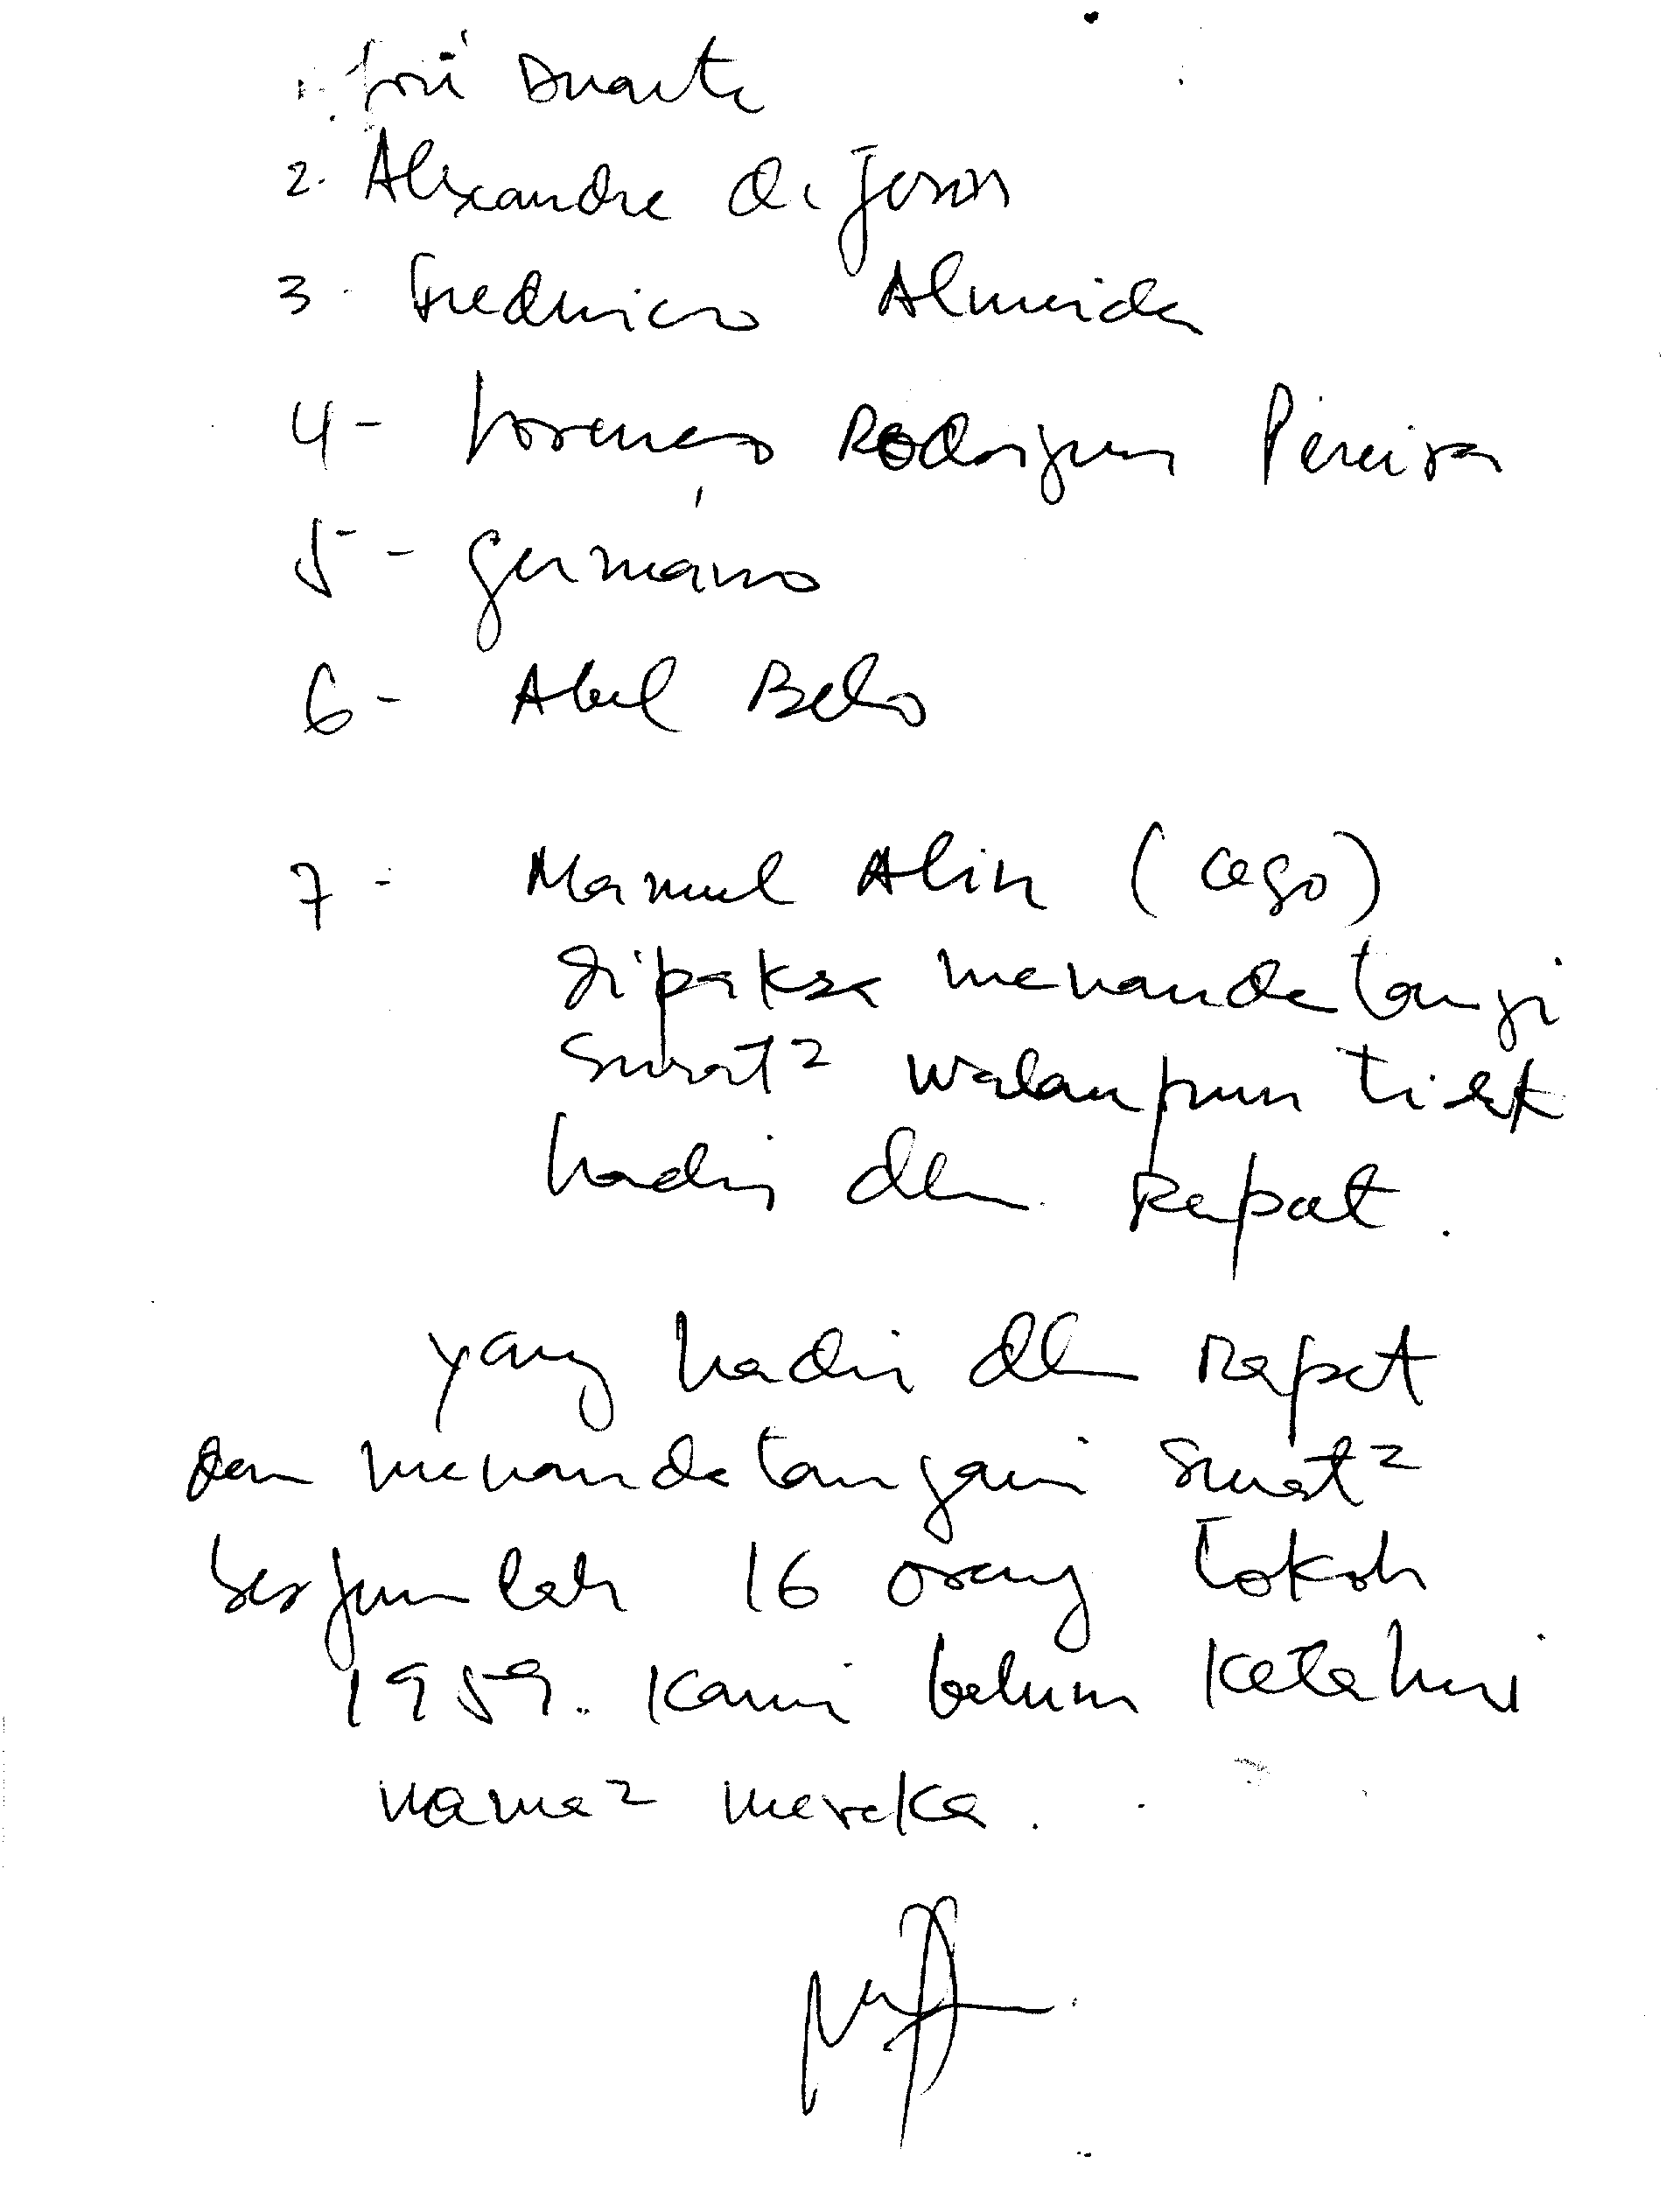 1. José Duarte
2. Alexandre de Jesus
3. Frederico Almeida
4- Lorenço Rodrigues Pereira
5- Germano
6- Abel Belo
7- Manuel Alin (cego)
dipaksa menandatangi
surat² walaupun tidak
hadir dlm Rapat.
yang hadir dlm Rapat
dan menandatangani surat²
berjumlah 16 orang tokoh
1959. Kami belum Ketahui
nama² mereka.